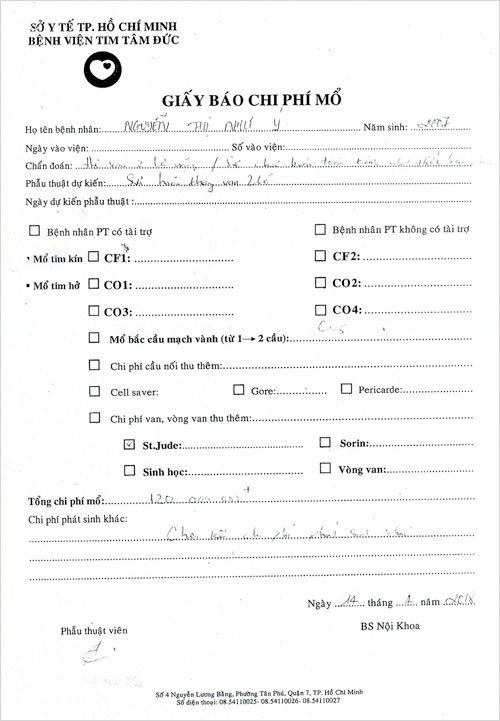 SỞ Y TẾ TP. HỒ CHÍ MINH
BỆNH VIỆN TIM TÂM ĐỨC
GIẤY BÁO CHI PHÍ MỔ
Họ tên bệnh nhân: NGUYỄN THỊ NHƯ Ý Năm sinh: 2007
Ngày vào viện: Số vào viện:
Chẩn đoán: 
Phẫu thuật dự kiến: van 2 lá
Ngày dự kiến phẫu thuật :
Bệnh nhân PT có tài trợ Bệnh nhân PT không có tài trợ
Mổ tim kín CF1: CF2:
Mổ tim hở CO1: CO2:
CO3: CO4:
Mổ bắc cầu mạch vành (từ 1→ 2 cầu):
Chi phí cầu nối thu thêm:
Cell saver: Gore: Pericarde:
Chi phí van, vòng van thu thêm:
St.Jude: Sorin:
Sinh học: Vòng van:
Tổng chi phí mổ: 120 000 000
Chi phí phát sinh khác:
Ngày 14 tháng năm
Phẫu thuật viên BS Nội Khoa
Số 4 Nguyễn Lương Bằng, Phường Tân Phú, Quận 7, TP. Hồ Chí Minh
Số điện thoại: 08.54110025- 08.54110026- 08.54110027